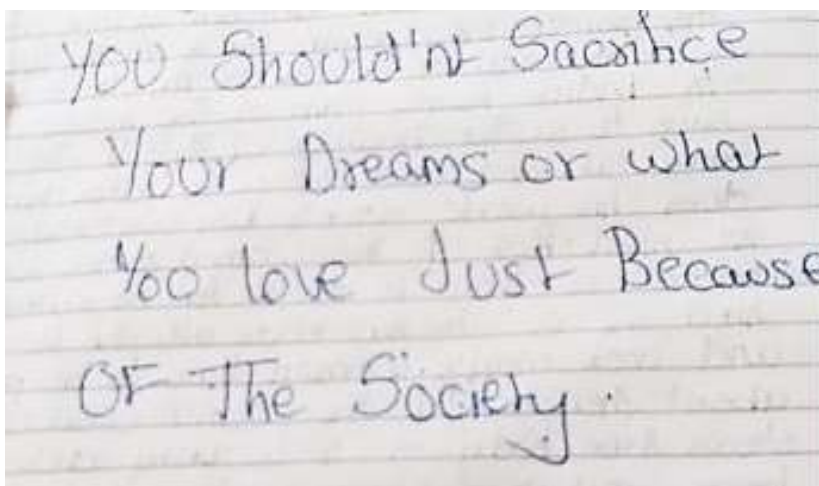 You Should'nt Sacrifice
Your Dreams or what
You love Just Because
OF The Society.